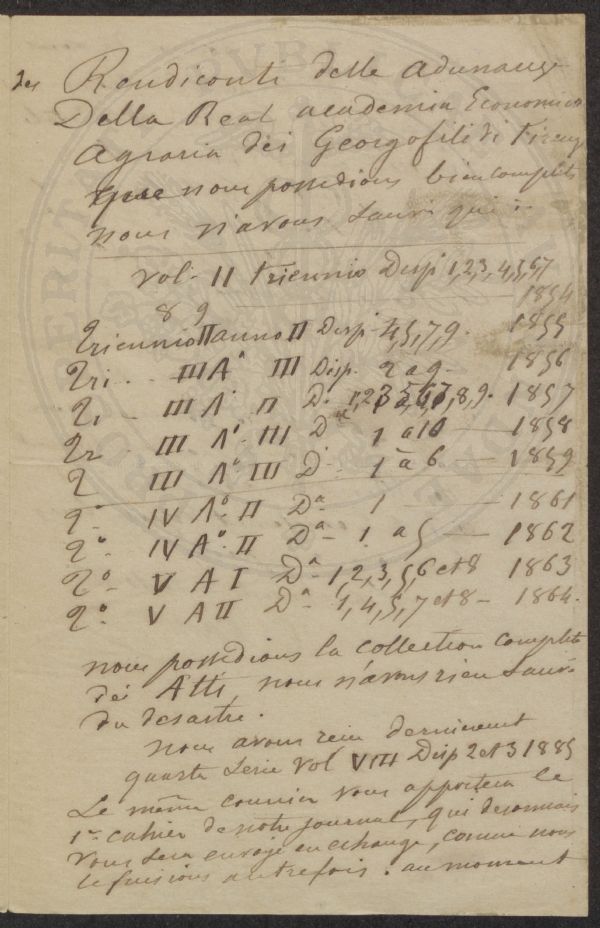 des Rendiconti delle adunanze
Della Real academia Economico
Agraria dei Georgofili di Firenze
que nous possedions bien complets
nous n'avons sauvé que :
Vol. II triennio Disp 1,2,3,4,5,6,7
1854
8 9
Triennio II anno II Disp 4,5,7,9. 1855
Tri. III A° III Disp. 2 a 9. 1856
T. III A° II D. 1,2,3,5,6,7,8,9. 1857
Tr. III A° III D 1 a 10 1858
T III A° III D 1 a 6 1859
T° IV A° II Dª 1 1861
T° IV A° II Dª 1 a 5 1862
T° V A I Dª 1,2,3,5,6 et 8 1863
T° V A II Dª 1,4,5,7 et 8 1864.
nous possedions la collection complete
dei Atti, nous n'avons rien sauvé
du desastre.
nous avons reçu dernierement
quarta serie Vol VIII Disp 2 et 3 1885
Le même courrier vous apportera le
1er cahier de notre journal, qui desormais
vous sera envoyé en echange, comme nous
le faisions autrefois. au moment